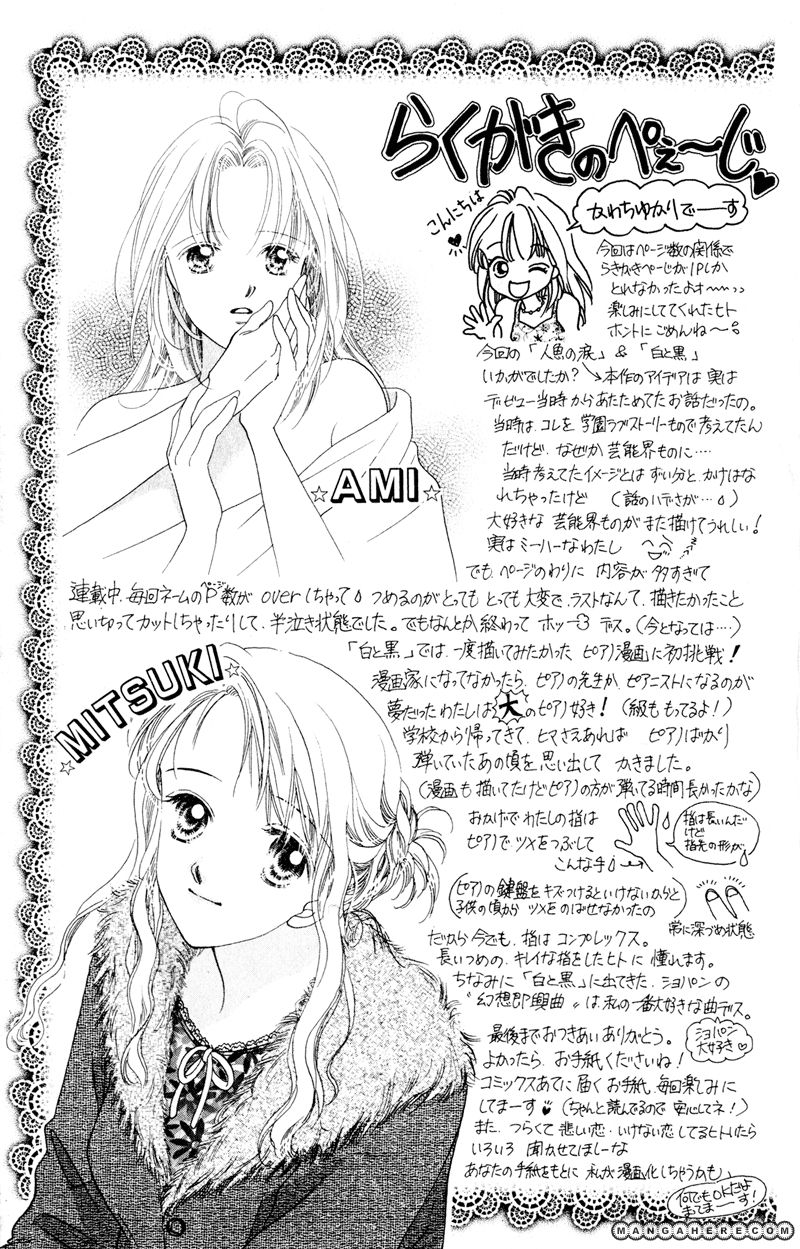 らくがきのぺぇ〜じ♥
こんにちは
かわちゆかりでーーす
今回はページ数の関係で
らきがきページが1Pしか
とれなかったよォ〜〜っっ
楽しみにしててくれたヒト
ホントにごめんね〜。
今回の「人魚の涙」&「白と黒」
いかがでしたか?→本作のアイデアは実は
デビュー当時からあたためてたお話だったの。
当時は、コレを学園ラブストーリーもので考えてたん
だけど、なぜか芸能界ものに‥‥
当時考えてたイメージとはずい分と、かけはな
れちゃったけど (話のハデさが…)
大好きな芸能界ものがまた描けてうれしい!
実はミーハーなわたし
でも、ページのわりに内容が多すぎて
☆AMI☆
連載中、毎回ネームのP数がoverしちゃって つめるのがとってもとっても大変で、ラストなんて、描きたかったこと
ページ
思い切ってカットしちゃったりして、半泣き状態でした。でもなんとか終わってホッ デス。(今となっては‥‥)
☆MITSUKI☆
「白と黒」では、一度描いてみたかったピアノ漫画に初挑戦!
漫画家になってなかったら、ピアノの先生か、ピアニストになるのが
夢だったわたしは大のピアノ好き!(級ももってるよ!)
学校から帰ってきて、ヒマさえあればピアノばかり
弾いていたあの頃を思い出して かきました。
(漫画も描いてたけどピアノの方が弾いてる時間長かったかな)
おかげでわたしの指は
ピアノでツメをつぶして
こんな手
指は長いんだ
けど
指先の形が
(ピアノの鍵盤をキズつけるといけないからと
子供の頃から ツメをのばせなかったの)
常に深づめ状態
だから今でも、指はコンプレックス。
長いつめの、キレイな指をしたヒトに憧れます。
ちなみに「白と黒」に出てきた、ショパンの
〝幻想即興曲〟は、私の一番大好きな曲デス。
ショパン
大好き♡
最後までおつきあいありがとう。
よかったら、お手紙くださいね!
コミックスあてに届くお手紙、毎回楽しみに
してまーす♥(ちゃんと読んでるので安心してネ!)
また、つらくて悲しい恋・いけない恋してるヒトいたら
いろいろ聞かせてほしーな
あなたの手紙をもとに私が漫画化しちゃうかも、
何でもOKだよ
まってまーーす!
MANGAHERE.COM